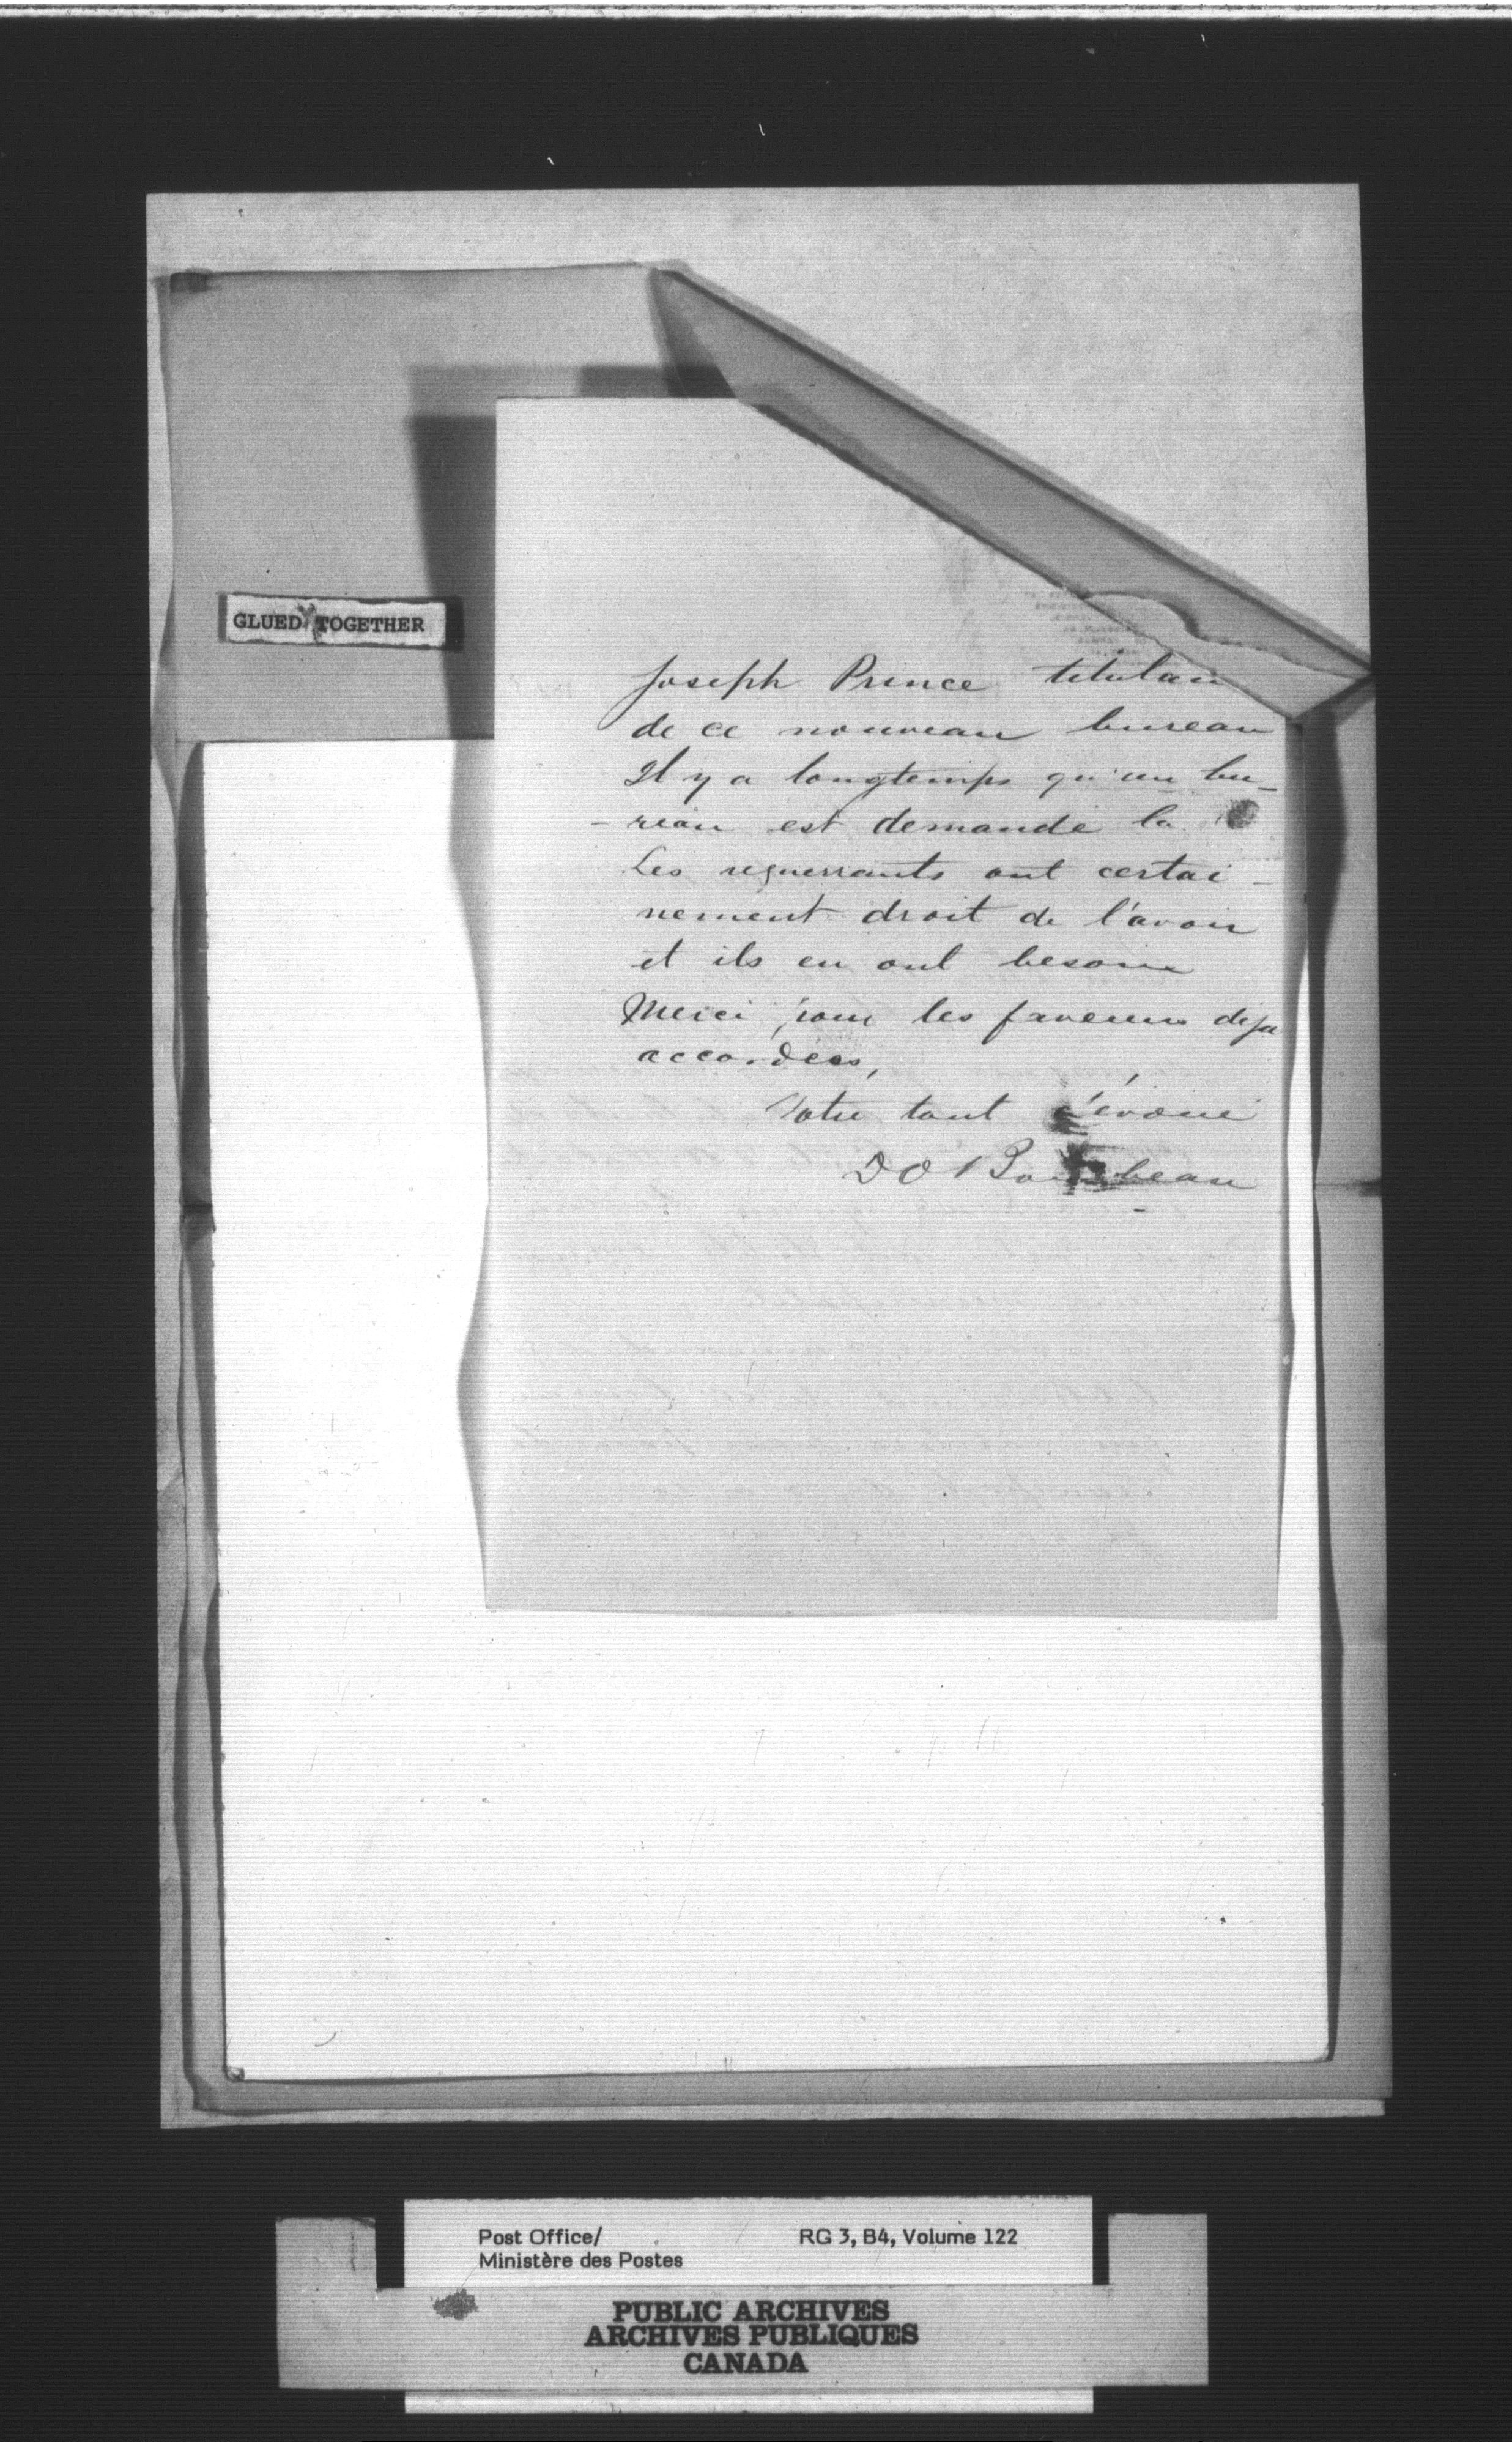 GLUED TOGETHER
Joseph Prince titulaire
de ce nouveau bureau
Il y a longtemps qu'un bu-
-reau est demandé là
Les requerrants ont certai-
nement droit de l'avoir
et ils en ont besoin
Merci pour les faveurs deja
accordées,
Votre tout dévoué
D O Bourbeau
Post Office/
Ministère des Postes
RG 3, B4, Volume 122
PUBLIC ARCHIVES
ARCHIVES PUBLIQUES
CANADA